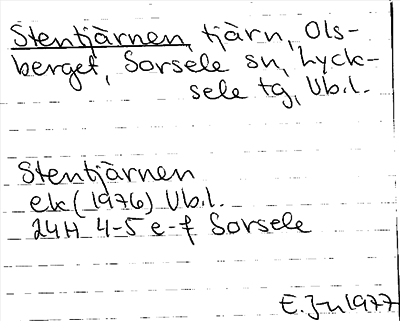 Stentjärnen, tjärn, Ols-
berget, Sorsele sn, Lyck-
sele tg, Vb.l.
Stentjärnen
ek (1976) Vb.l.
24H 4-5 e-f Sorsele
E. J-n 1977